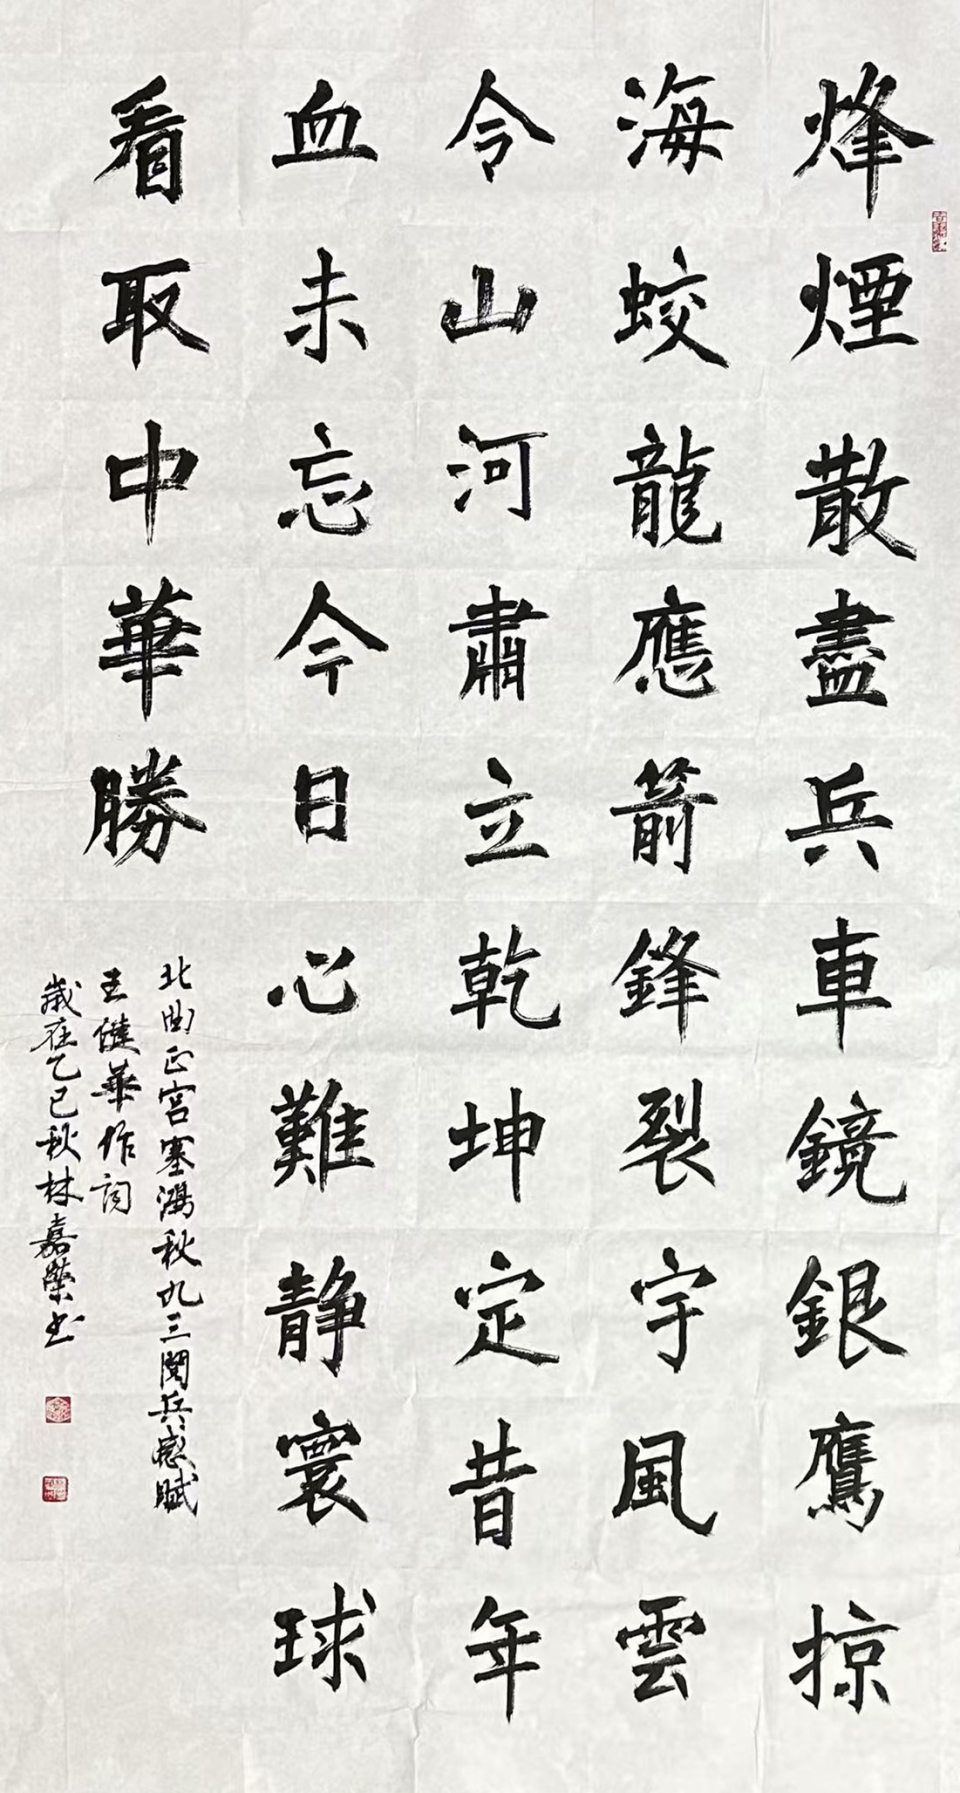 烽煙散盡兵車鏡銀鷹掠
海蛟龍應箭鋒裂宇風雲
令山河肅立乾坤定昔年
血未忘今日心難静寰球
看取中華勝
北曲正宮塞鴻秋九三閱兵感賦
王健華作詞
歲在乙巳秋林嘉榮书